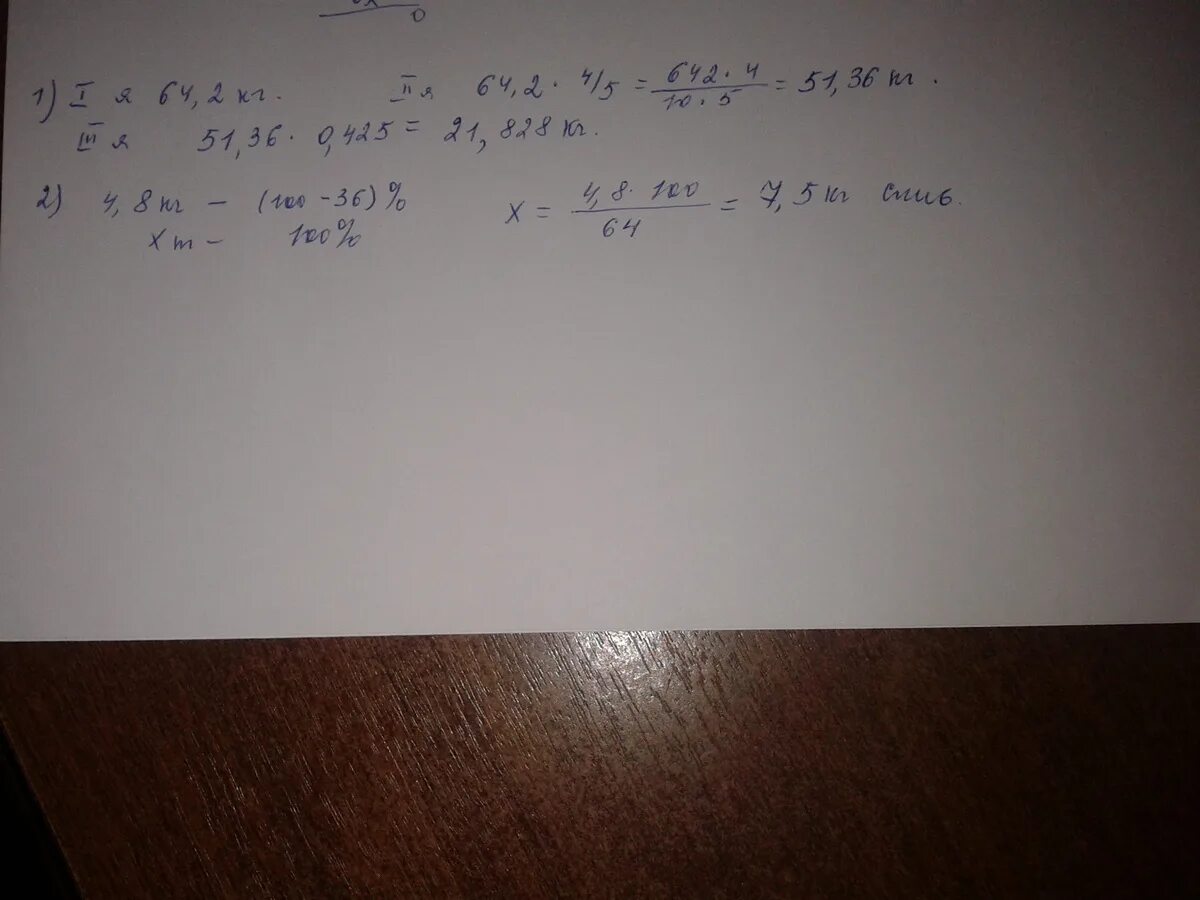 1) I я 64,2 кг. II я 64,2 · 4/5 = 642 · 4 / 10 · 5 = 51,36 кг.
III я 51,36 · 0,425 = 21,828 кг.
2) 4,8 кг – (100 – 36)% x = 4,8 · 100 / 64 = 7,5 кг слив.
x т – 100%